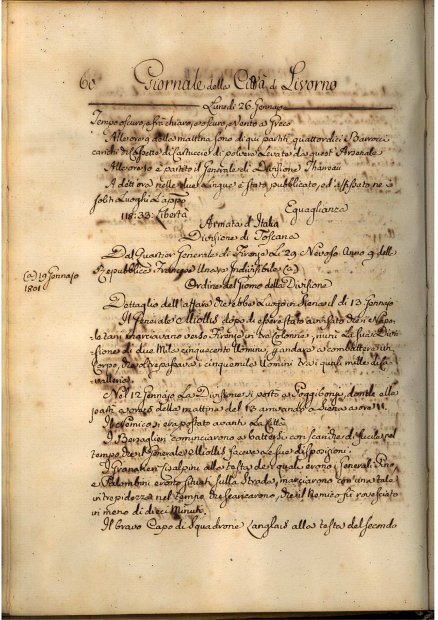 60 Giornale della Città di Livorno
Lunedì 26. Gennajo
Tempo oscuro, e frà chiaro, e oscuro, e vento a Greco
Alle ore della mattina sono di qui partiti quattordici Barrocci
carichi di Cassette di Cartuccie di polvere levate da quest' Arsenale
Alle ore è partito il Generale di Divisione
A dett'ora nelle due Lingue è stato pubblicato, ed affissato ne
soliti Luoghi
Libertà Eguaglianza
Armata d'Italia
Divisione di Toscana
Dal Quartier Generale di Firenze Li 29. Nevoso Anno 9. della
Repubblica Francese Una ed Indivisibile (a)
(a) 19 Gennajo
1801
Ordine del Giorno della Divisione
Dettaglio dell' affare che ebbe luogo in Siena il dì 13. Gennajo
Il Generale Miollis dopo di essere stato avvisato che i Napo
letani marciavano verso Firenze in tre Colonne, riunì Le sue Divi
sione di due Mila cinquecento Uomini, e andava a combattere un
Corpo, che oltrepassava i cinquemila Uomini tra i quali mille di Ca
valleria.
Nel 12 Gennajo La Divisione si portò a Poggibonzi, donde alle
della mattina del 13 arrivando a Siena a ore 11.
Il Nemico si era postato avanti La Città
I Bersaglieri cominciarono a battersi con Scariche di fucile nel
tempo che il Generale Miollis faceva Le sue disposizioni.
I Granatieri Cisalpini alla testa dei quali erono i Generali Pino,
e Palombini erono situati sulla Strada, marciarono con una tale
intrepidezza nel tempo che scaricarono, che il Nemico fù rovesciato
in meno di dieci Minuti.
Il bravo Capo di Squadrone Langlais alla testa del secondo